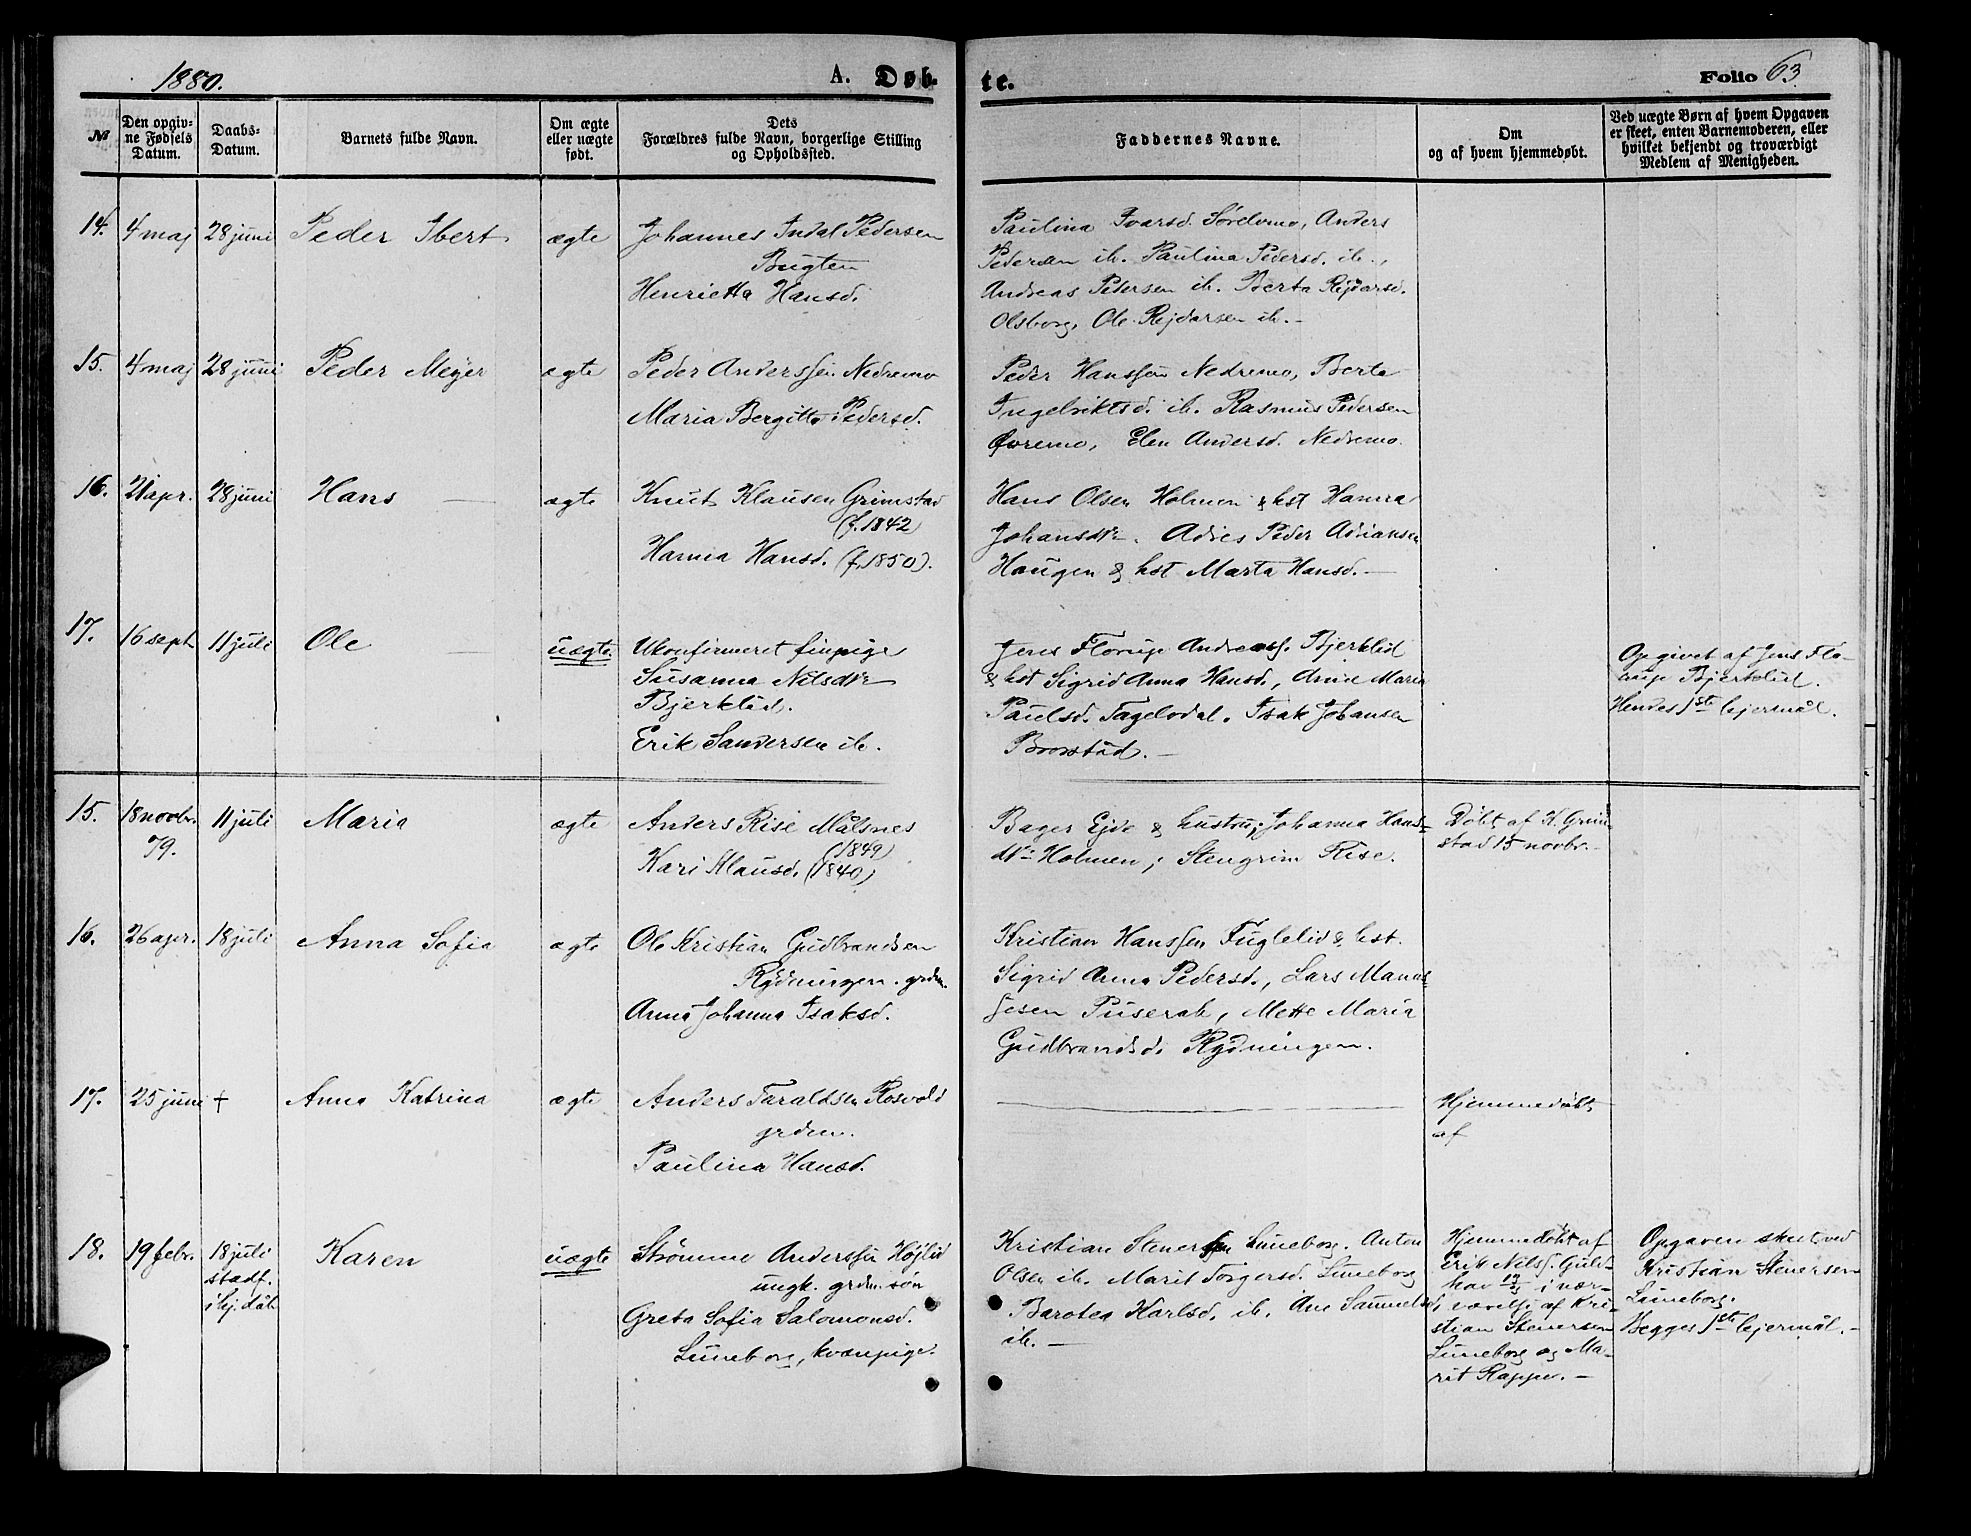 1880. A. Døb- te. Folio 63
№ Den opgiv-
ne Fødsels
Datum. Daabs-
Datum. Barnets fulde Navn. Om ægte
eller uægte
født. Dets
Forældres fulde Navn, borgerlige Stilling
og Opholdssted. Faddernes Navne. Om
og af hvem hjemmedøbt. Ved uægte Børn af hvem Opgaven
er skeet, enten Barnemoderen, eller
hvilket bekjendt og troværdigt
Medlem af Menigheden.
14. 4 maj 28 juni Peder Ibert ægte Johannes Indal Pedersen
Bugten
Henrietta Hansd.
Paulina Ivarsd. Sørelvmo, Anders
Pedersen ib. Paulina Pedersd. ib.,
Andreas Pedersen ib. Berta Rejdarsd.
Olsborg, Ole Rejdarsen ib. –
15. 4 maj 28 juni Peder Mejer ægte Peder Anderssen Nedremo
Maria Bergitta Pedersd.
Peder Hanssen Nedremo, Berta
Ingebriktsd. ib. Rasmus Pedersen
Øvremo, Elen Andersd. Nedremo.
16. 21 apr. 28 juni Hans — ægte Knut Klausen Grimstad
(f. 1842)
Hanna Hansd. (f. 1850).
Hans Olsen Holmen & hst Hanna
Johansdtr. Adries Peder Adriansen
Haugen & hst Marta Hansd. —
17. 16 sept. 11 juli Ole — uægte. Ukonfirmeret finpige
Susanna Nilsdtr
Bjerklid.
Erik Sandersen ib.
Jens Florup Andreass. Bjerklid
& hst Sigrid Anna Hansd., Anne Maria
Paulsd. Fagelvdal. Isak Johansen
Brostad. —
Opgivet af Jens Flo-
rup Bjerklid.
Hendes 1ste lejermål.
15. 18 novbr.
79. 11 juli Maria ægte Anders Rise Målsnes
(1849)
Kari Klausd. (1840)
Bager Ejde & hustru; Johanna Hans-
dtr Holmen; Stengrim Rise.
Døbt af K. Grim-
stad 15 novbr. –
16. 26 apr. 18 juli Anna Sofia ægte Ole Kristian Gudbrandsen
Rydningen. grdm.
Anna Johanna Isaksd.
Kristian Hanssen Fuglelid & hst.
Sigrid Anna Pedersd., Lars Manas-
sesen Puserak, Mette Maria
Gudbrandsd. Rydningen.
17. 25 juni + Anna Katrina ægte Anders Taraldsen Rosvold
grdem.
Paulina Hansd.
Hjemmedøbt
af
18. 19 febr. 18 juli
stadf.
i hj. dåb Karen uægte Strømme Anderssen Højlid
ungk. grdm. søn
Greta Sofia Salomonsd.
Luneborg, kvænpige.
Kristian Stenersen Luneborg. Anton
Olsen ib. Marit Torgersd. Luneborg
Barotea Karlsd. ib. Ane Samuelsd.
ib. —
Hjemmedøbt af
Erik Nilss. Guld-
hav i nær-
værelse af Kri-
stian Stenersen
Luneborg og Ma-
rit Rappe. –
Opgaven skeet ved
Kristian Stenersen
Luneborg.
Begges 1ste lejermål. –